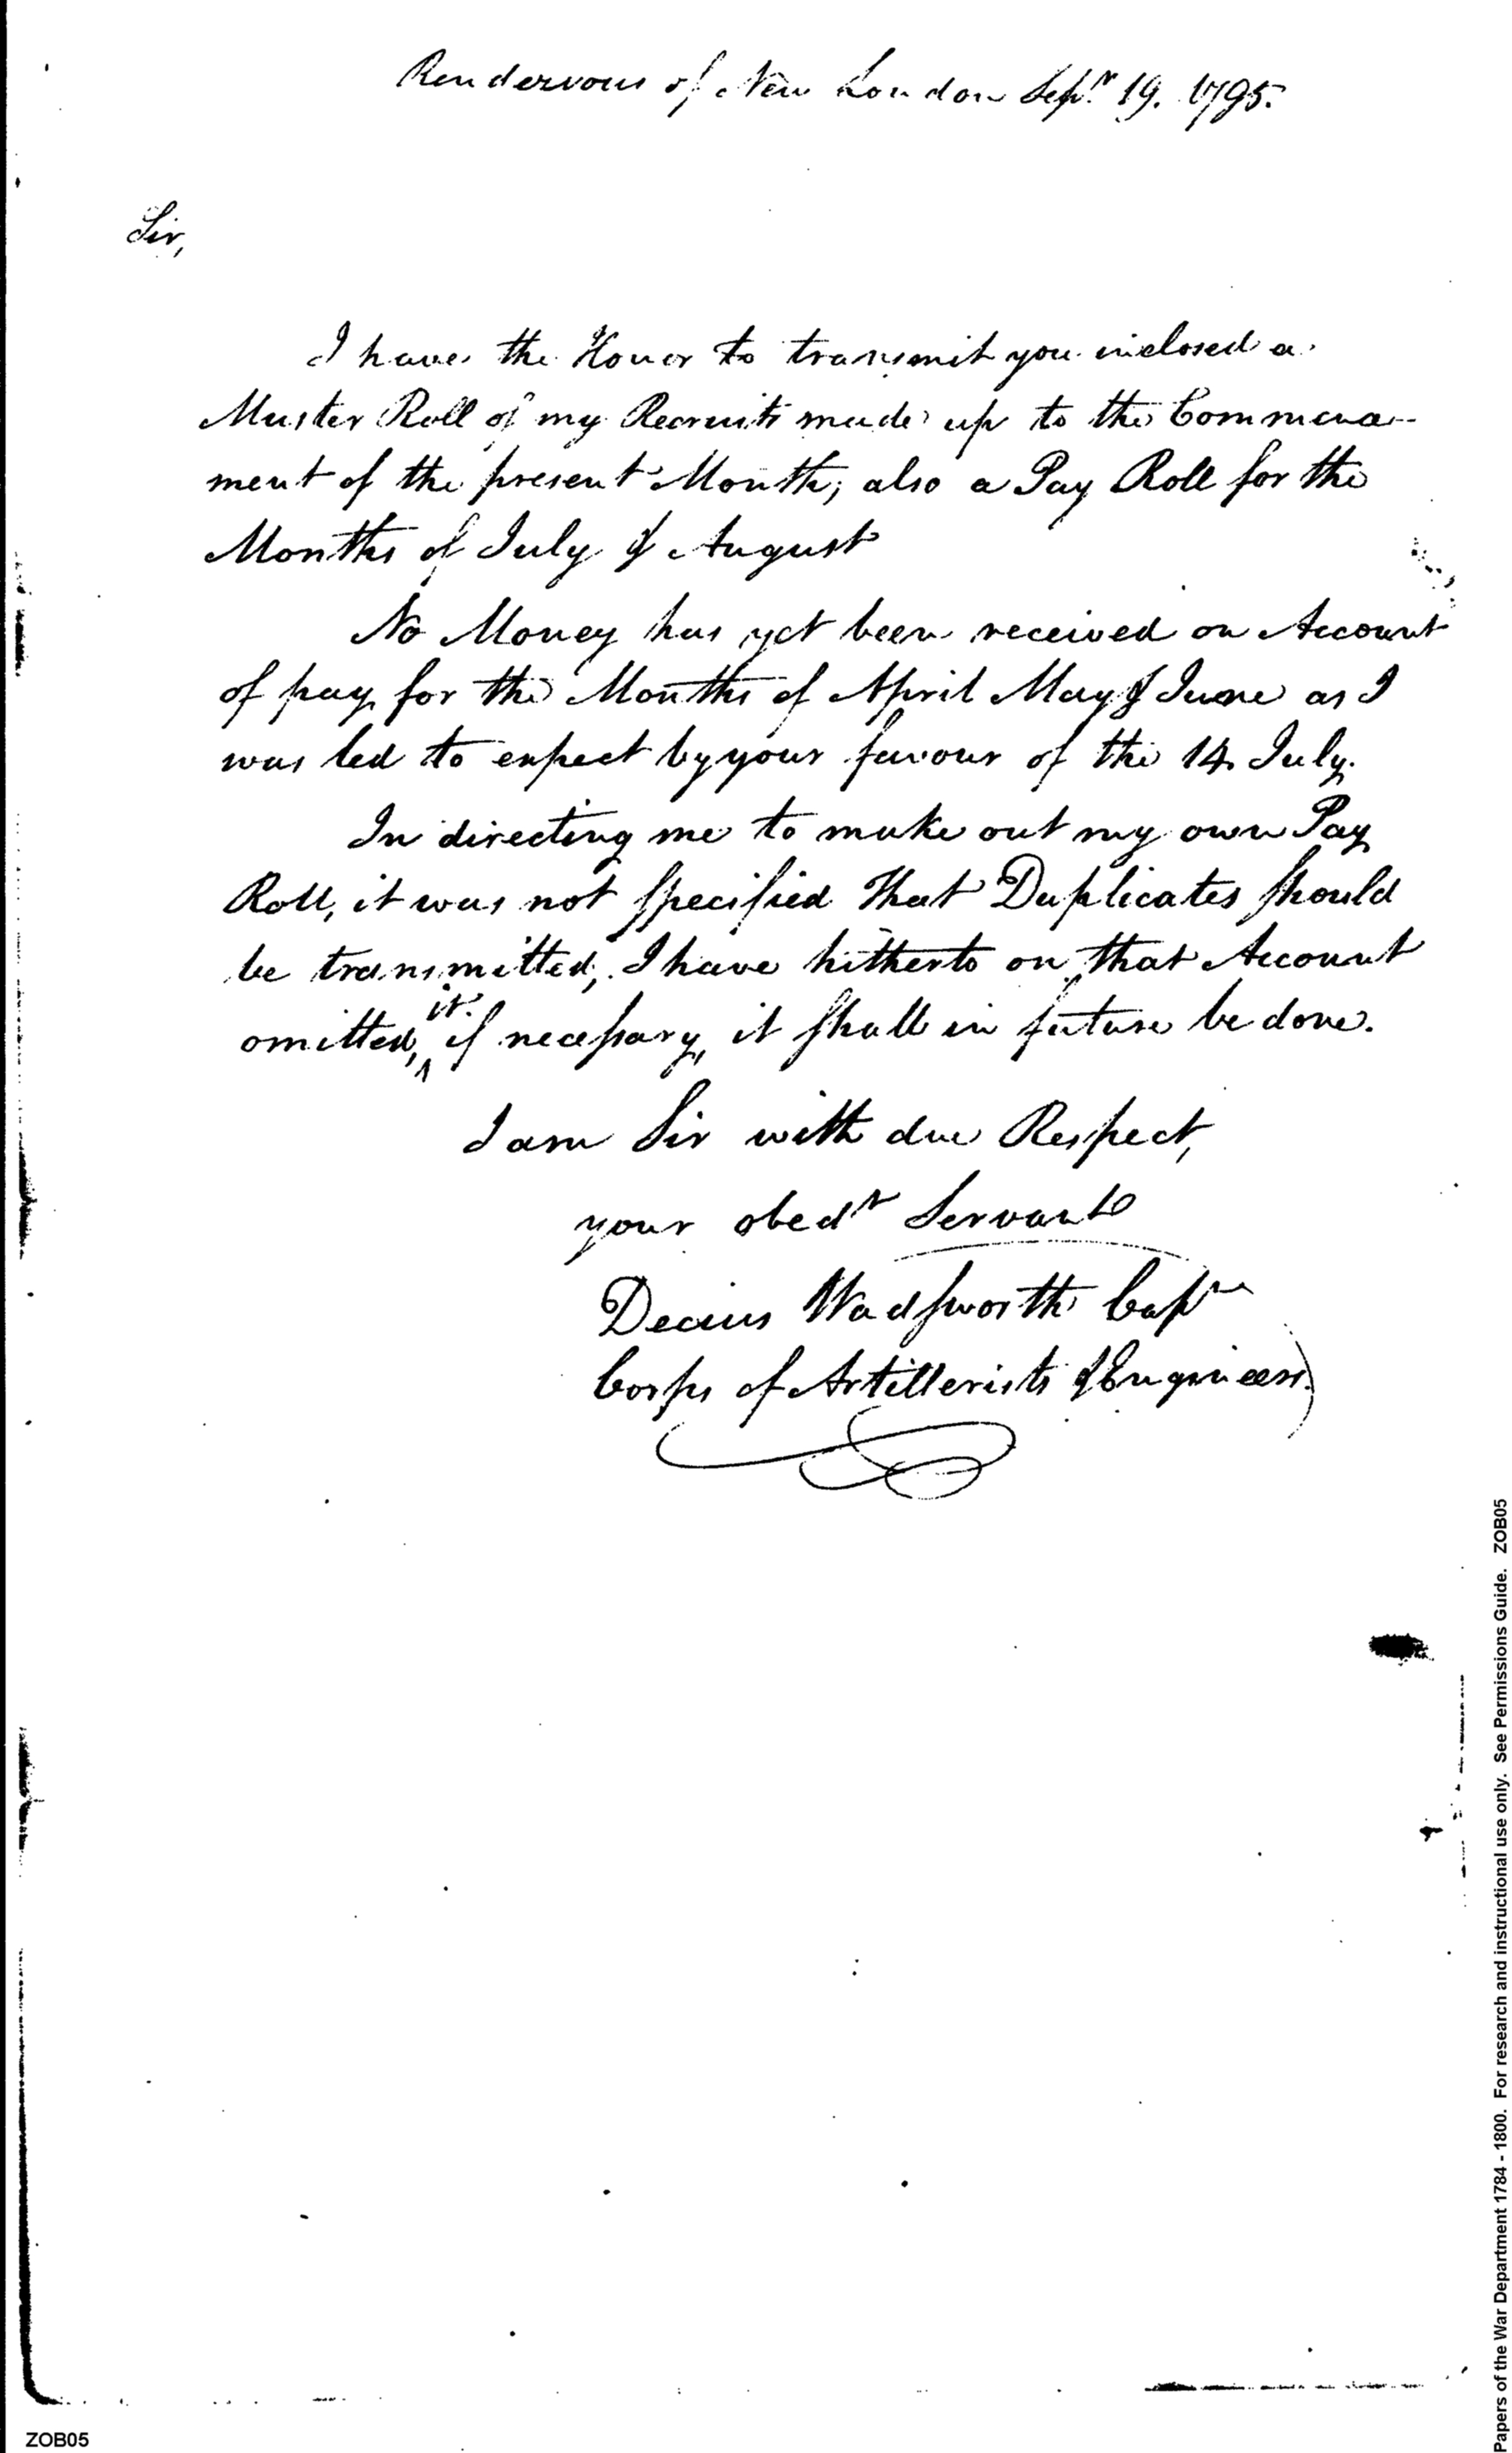 Rendezvous of New London Sepr. 19. 1795.
Sir,
I have the Honor to transmit you inclosed a
Muster Roll of my Recruits made up to the Commence-
ment of the present Month; also a Pay Roll for the
Months of July & August
No Money has yet been received on Account
of pay for the Months of April May & June as I
was led to expect by your favour of the 14 July.
In directing me to make out my own Pay
Roll, it was not specified that Duplicates should
be transmitted; I have hitherto on that Account
omitted, it if necessary, it shall in future be done.
I am Sir with due Respect,
your obedt Servant
Decius Wadsworth Capn
Corps of Artillerists & Engineers
Papers of the War Department 1784 - 1800. For research and instructional use only. See Permissions Guide. ZOB05
ZOB05